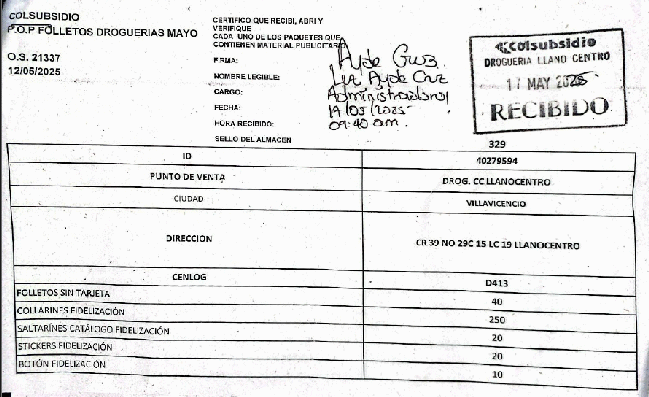 COLSUBSIDIO
P.O.P FOLLETOS DROGUERIAS MAYO
O.S. 21337
12/05/2025
CERTIFICO QUE RECIBI, ABRI Y
VERIFIQUE
CADA UNO DE LOS PAQUETES QUE
CONTIENEN MATERIAL PUBLICITARIO
FIRMA: Ayde Cruz
NOMBRE LEGIBLE: Luz Ayde Cruz
CARGO: Administradora
FECHA: 19/05/2025
HORA RECIBIDO: 09:40 am.
SELLO DEL ALMACEN
colsubsidio
DROGUERIA LLANO CENTRO
17 MAY 2025
RECIBIDO
329
ID 10279594
PUNTO DE VENTA DROG. CC LLANOCENTRO
CIUDAD VILLAVICENCIO
DIRECCION CR 39 NO 29C 15 LC 19 LLANOCENTRO
CENLOG D413
FOLLETOS SIN TARJETA 40
COLLARINES FIDELIZACIÓN 250
SALTARÍNES CATÁLOGO FIDELIZACIÓN 20
STICKERS FIDELIZACIÓN 20
BOTÓN FIDELIZACIÓN 10